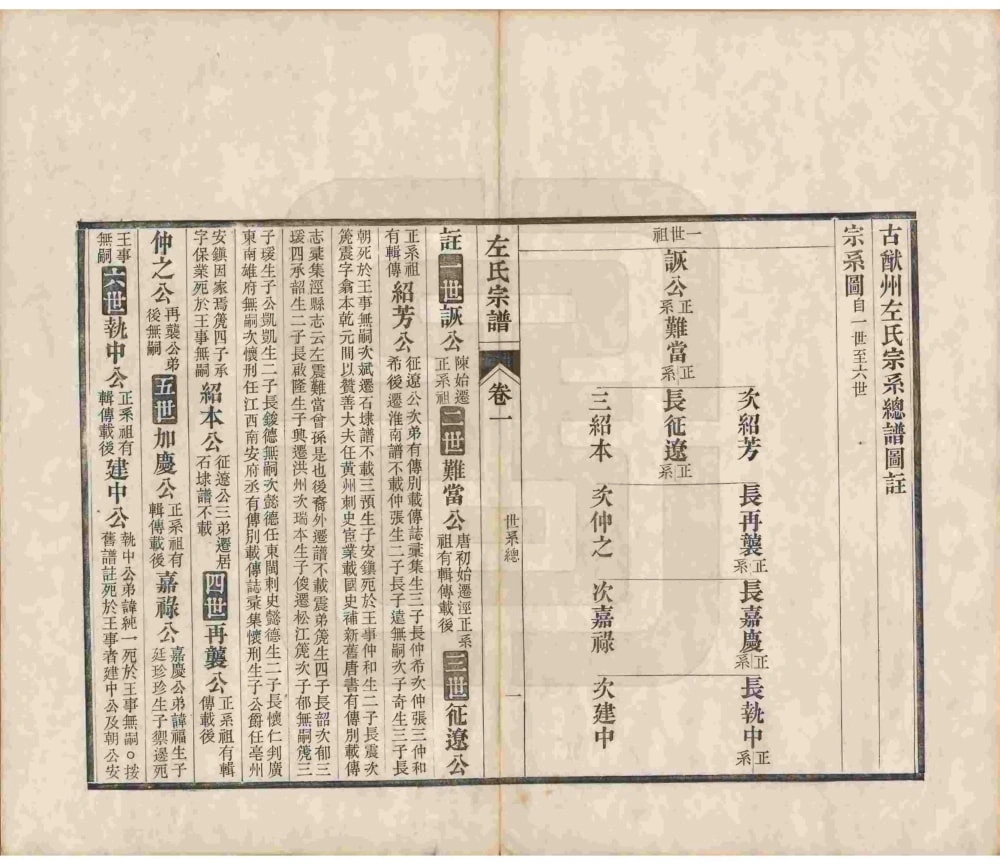 古猷州左氏宗系總譜圖註
宗系圖自一世至六世
一世祖
詼公正系
難當正系
長征遼正系
次紹芳
三紹本
長再襲正系
次仲之
長嘉慶正系
次嘉祿
長執中正系
次建中
左氏宗譜 卷一 世系總 一
註一世詼公陳始遷正系祖二世難當公唐初始遷涇正系祖有輯傳載後三世征遼公
正系祖有輯傳紹芳公征遼公次弟有傳別載傳誌彙集生三子長仲希次仲張三仲和希後遷淮南譜不載仲張生二子長子遠無嗣次子奇生三子長
朝死於王事無嗣次斌遷石埭譜不載三預生子安鎮死於王事仲和生二子長震次
箎震字翕本乾元間以贊善大夫任黃州刺史宦業載國史補新舊唐書有傳別載傳
志彙集涇縣志云左震難當曾孫是也後裔外遷譜不載震弟箎生四子長韶次郁三
瑗四承韶生二子長啟隆生子興遷洪州次瑞本生子俊遷松江箎次子郁無嗣箎三
子瑗生子公凱凱生二子長鋑德無嗣次懿德任東閩刺史懿德生二子長懷仁判廣
東南雄府無嗣次懷刑任江西南安府丞有傳別載傳誌彙集懷刑生子公爵任亳州
安鎮因家焉箎四子承字保業死於王事無嗣紹本公征遼公三弟遷居石埭譜不載四世再襲公正系祖有輯傳載後
仲之公再襲公弟後無嗣五世加慶公正系祖有輯傳載後嘉祿公嘉慶公弟諱福生子廷珍珍生子禦邊死
王事無嗣六世執中公正系祖有輯傳載後建中公執中公弟諱純一死於王事無嗣○按舊譜註死於王事者建中公及朝公安